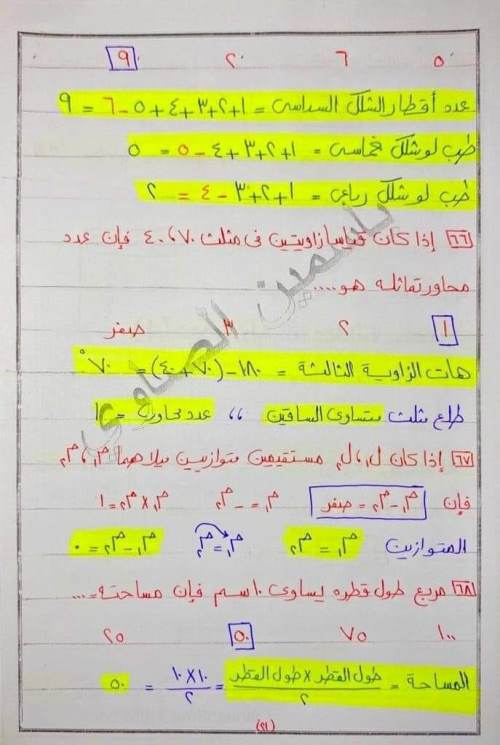 ٥ ٦ ٢ ٩
عدد أقطار الشكل السداسى = ١+٢+٣+٤+٥-٦ = ٩
طب لو شكل خماسى = ١+٢+٣+٤-٥ = ٥
طب لو شكل رباعى = ١+٢+٣-٤ = ٢
٦٦ إذا كان قياسا زاويتين فى مثلث ٧٠°، ٤٠° فإن عدد
محاور تماثله هو ....
١ ٢ ٣ صفر
هات الزاوية الثالثة = ١٨٠-(٧٠+٤٠) = ٧٠°
طلع مثلث متساوى الساقين ،، عدد محاوره = ١
٦٧ إذا كان ل١، ل٢ مستقيمين متوازيين ميلاهما م١، م٢
فإن م١-م٢ = صفر م١ = -م٢ م١×م٢ = ١
المتوازيين م١ = م٢ م١ = م٢ م١-م٢ = ٠
٦٨ مربع طول قطره يساوى ١٠ سم فإن مساحته = ...
١٠٠ ٧٥ ٥٠ ٢٥
المساحة = طول القطر × طول القطر / ٢ = ١٠×١٠ / ٢ = ٥٠
(٢١)
ياسمين الصاوي